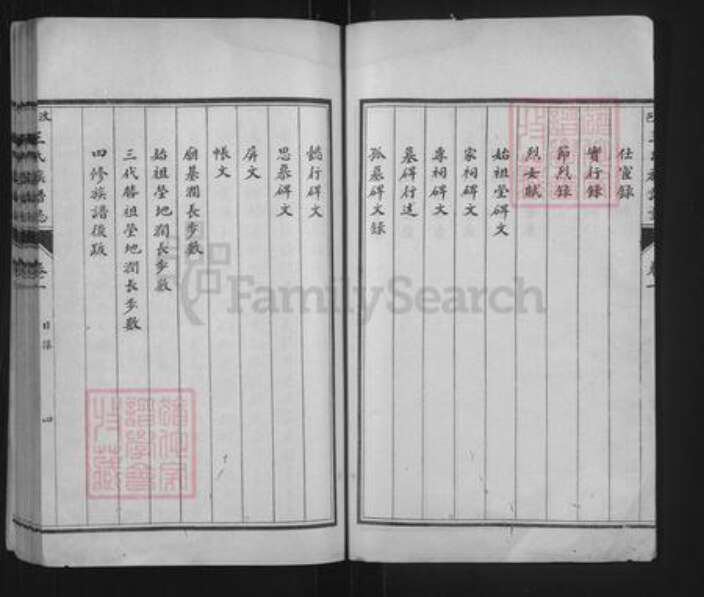 仕宦錄
實行錄
節烈錄
烈女賦
始祖塋碑文
家祠碑文
專祠碑文
墓碑行述
孤墓碑文錄
懿行碑文
思慕碑文
屏文
帳文
廟基濶長步數
始祖塋地濶長步數
三代替祖塋地濶長步數
四修族譜後跋
王氏族譜志
卷一
目錄
四
FamilySearch